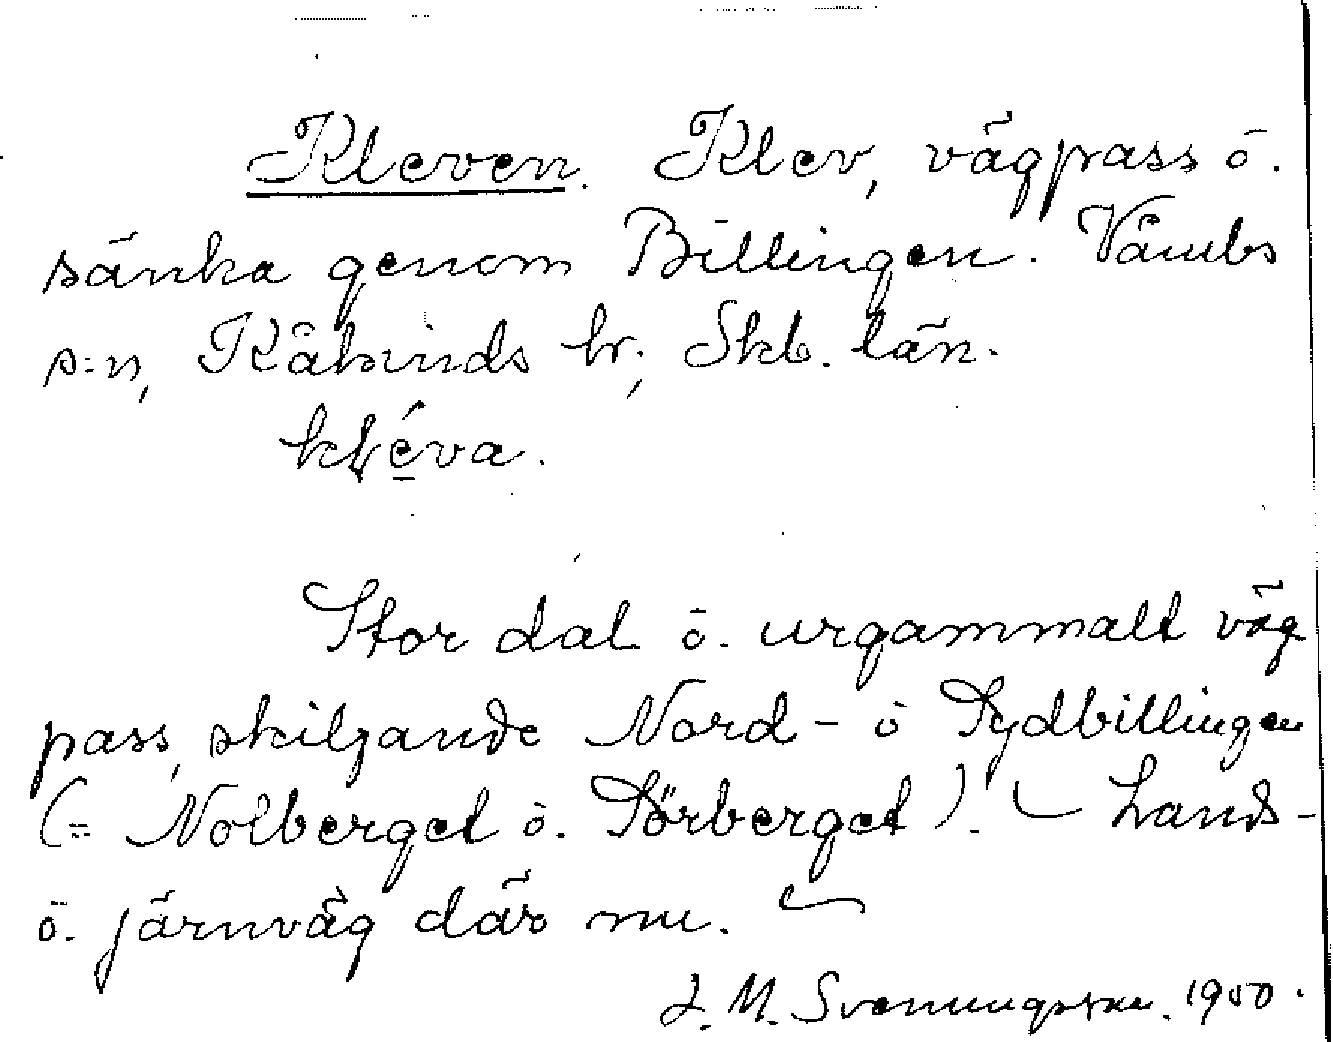 Kleven. Klev, vägpass ö.
sänka genom Billingen. Våmbs
s:n, Kåkinds hr; Skb. län.
kléva.
Stor dal ö. urgammalt väg
pass, skiljande Nord- ö Sydbillingen
(= Nolberget ö. Sörberget). – Lands-
ö. järnväg där nu. –
J. M. Svenungsson. 1950.